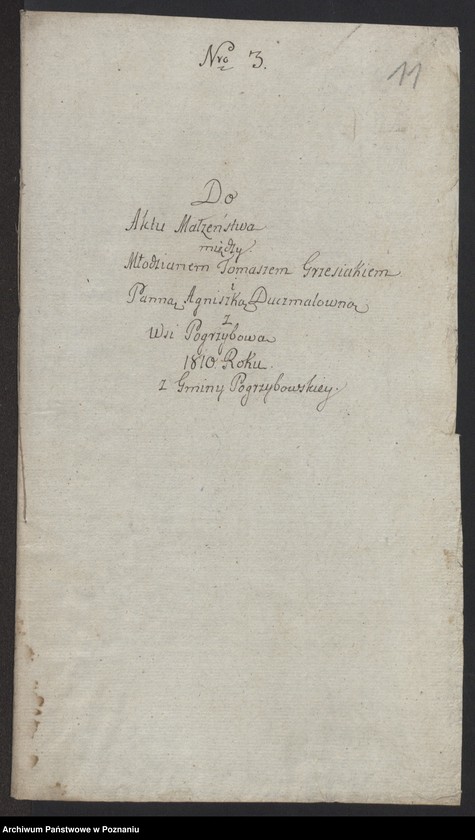 Nro 3.
11
Do
Aktu Małzeństwa
między
Młodzianem Tomaszem Grzesiakiem
i
Panną Agniszką Duczmalowną
z
Wsi Pogrzybowa
1810 Roku.
z Gminy Pogrzybowskiey.
Archiwum Państwowe w Poznaniu